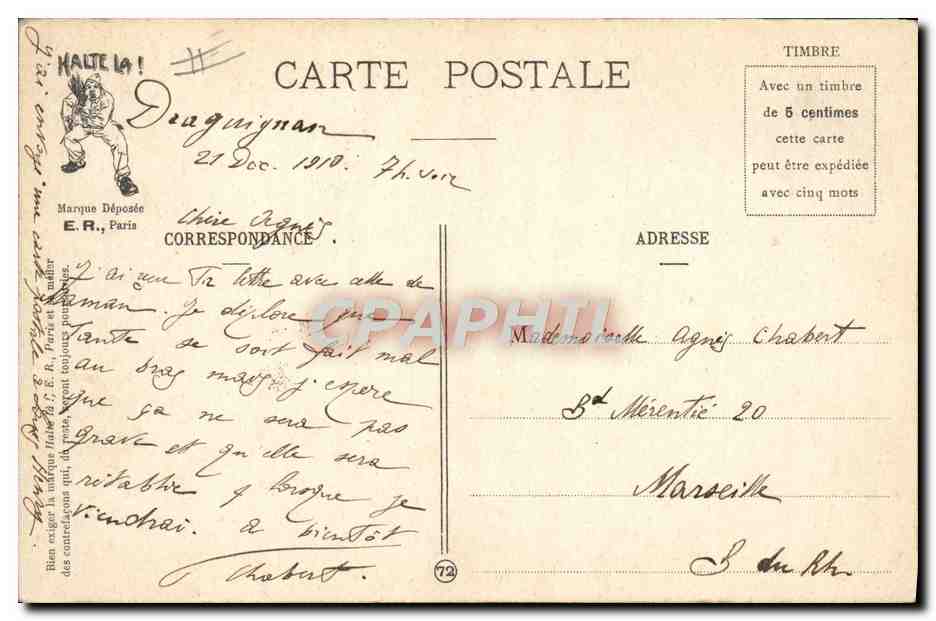 HALTE LA !
CARTE POSTALE
TIMBRE
Avec un timbre
de 5 centimes
cette carte
peut être expédiée
avec cinq mots
Marque Déposée
E. R., Paris
Draguignan
21 Dec. 1910. 7h. soir
Chère Agnès.
CORRESPONDANCE
J'ai reçu Ta lettre avec celle de
Maman. Je déplore que
Tante se soit fait mal
au bras mais j'espère
que ça ne sera pas
grave et qu'elle sera
rétablie lorsque je
viendrai. a bientôt
Chabert.
J'ai envoyé une carte postale
Bien exiger la marque Halte là !, E. R., Paris et se méfier
des contrefaçons qui, du reste, seront toujours poursuivies.
72
ADRESSE
Mademoiselle Agnès Chabert
Bd Mérentié 20
Marseille
B du Rh.
CPAPHIL